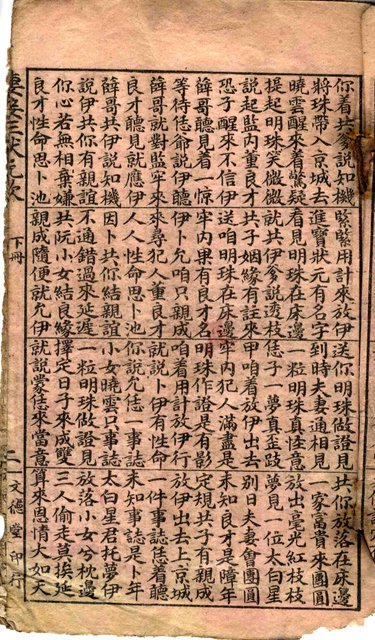 你着共爹說知機 緊緊用計來放伊 送你明珠做證見 共你放落在床邊
將珠帶入京城去 進寶狀元有名字 到時夫妻通相見 一家富貴來團圓
曉雲醒來着驚疑 看見明珠在床邊 一粒明珠真怪意 放出毫光紅枝枝
提起明珠笑微微 就共伊爹說透枝 恁子一夢真歪跂 夢見一位太白星
說起監內重良才 共子姻緣有註來 甲咱着放伊出去 別日夫妻會團圓
恐子醒來不信伊 送咱明珠在床邊 牢內犯人滿盡是 未知良才是障年
薛哥聽見着一惊 牢內果有良才名 明珠作證是有影 定規共子有親成
等待恁爺說伊聽 伊卜允咱只親成 咱着用計放伊行 放伊出去上京城
薛哥就對監牢來 來尋犯人重良才 就說卜伊有性命 一件事誌恁着聽
良才聽見就應伊 人人性命思卜池 你說允恁一事誌 未知事誌是卜年
薛哥共伊說知機 因卜共你結親誼 小女曉雲只事誌 太白星君托夢伊
說伊共你有親誼 不通錯過來延遲 一粒明珠做證見 放落小女兮枕邊
你心若無相棄嫌 共阮小女結良緣 擇定日子來成雙 三人偷走莫挨延
良才性命思卜池 親成隨便就允伊 就說蒙恁來當意 算來恩情大如天
下冊 二 文德堂印行